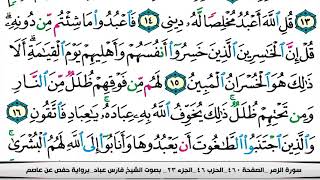 ١٣ قُلِ ٱللَّهَ أَعْبُدُ مُخْلِصًا لَّهُۥ دِينِى ١٤ فَٱعْبُدُوا۟ مَا شِئْتُم مِّن دُونِهِۦ ۗ
قُلْ إِنَّ ٱلْخَـٰسِرِينَ ٱلَّذِينَ خَسِرُوٓا۟ أَنفُسَهُمْ وَأَهْلِيهِمْ يَوْمَ ٱلْقِيَـٰمَةِ ۗ أَلَا
ذَٰلِكَ هُوَ ٱلْخُسْرَانُ ٱلْمُبِينُ ١٥ لَهُم مِّن فَوْقِهِمْ ظُلَلٌ مِّنَ ٱلنَّارِ
وَمِن تَحْتِهِمْ ظُلَلٌ ۚ ذَٰلِكَ يُخَوِّفُ ٱللَّهُ بِهِۦ عِبَادَهُۥ ۚ يَـٰعِبَادِ فَٱتَّقُونِ ١٦
وَٱلَّذِينَ ٱجْتَنَبُوا۟ ٱلطَّـٰغُوتَ أَن يَعْبُدُوهَا وَأَنَابُوٓا۟ إِلَى ٱللَّهِ لَهُمُ ٱلْبُشْرَىٰ ۚ
سورة الزمر - الصفحة ٤٦٠ - الحزب ٤٦ - الجزء ٢٣ - بصوت الشيخ فارس عباد - برواية حفص عن عاصم